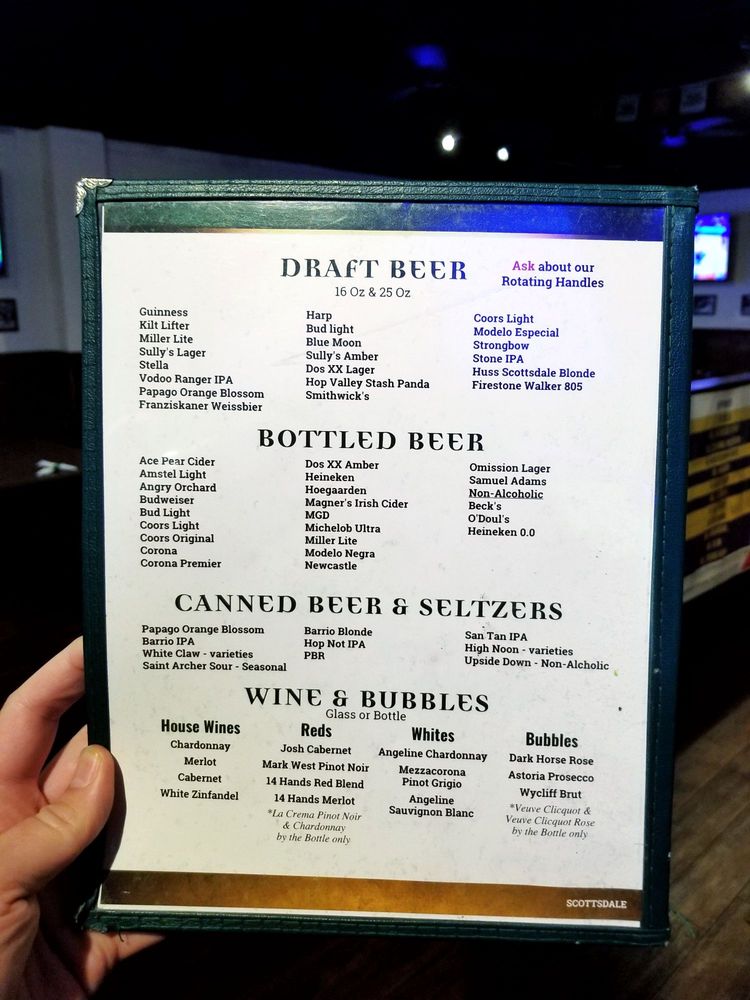 DRAFT BEER
16 Oz & 25 Oz
Ask about our
Rotating Handles
Guinness
Kilt Lifter
Miller Lite
Sully's Lager
Stella
Vodoo Ranger IPA
Papago Orange Blossom
Franziskaner Weissbier
Harp
Bud light
Blue Moon
Sully's Amber
Dos XX Lager
Hop Valley Stash Panda
Smithwick's
Coors Light
Modelo Especial
Strongbow
Stone IPA
Huss Scottsdale Blonde
Firestone Walker 805
BOTTLED BEER
Ace Pear Cider
Amstel Light
Angry Orchard
Budweiser
Bud Light
Coors Light
Coors Original
Corona
Corona Premier
Dos XX Amber
Heineken
Hoegaarden
Magner's Irish Cider
MGD
Michelob Ultra
Miller Lite
Modelo Negra
Newcastle
Omission Lager
Samuel Adams
Non-Alcoholic
Beck's
O'Doul's
Heineken 0.0
CANNED BEER & SELTZERS
Papago Orange Blossom
Barrio IPA
White Claw - varieties
Saint Archer Sour - Seasonal
Barrio Blonde
Hop Not IPA
PBR
San Tan IPA
High Noon - varieties
Upside Down - Non-Alcholic
WINE & BUBBLES
Glass or Bottle
House Wines
Chardonnay
Merlot
Cabernet
White Zinfandel
Reds
Josh Cabernet
Mark West Pinot Noir
14 Hands Red Blend
14 Hands Merlot
*La Crema Pinot Noir
& Chardonnay
by the Bottle only
Whites
Angeline Chardonnay
Mezzacorona
Pinot Grigio
Angeline
Sauvignon Blanc
Bubbles
Dark Horse Rose
Astoria Prosecco
Wycliff Brut
*Veuve Clicquot &
Veuve Clicquot Rose
by the Bottle only
SCOTTSDALE